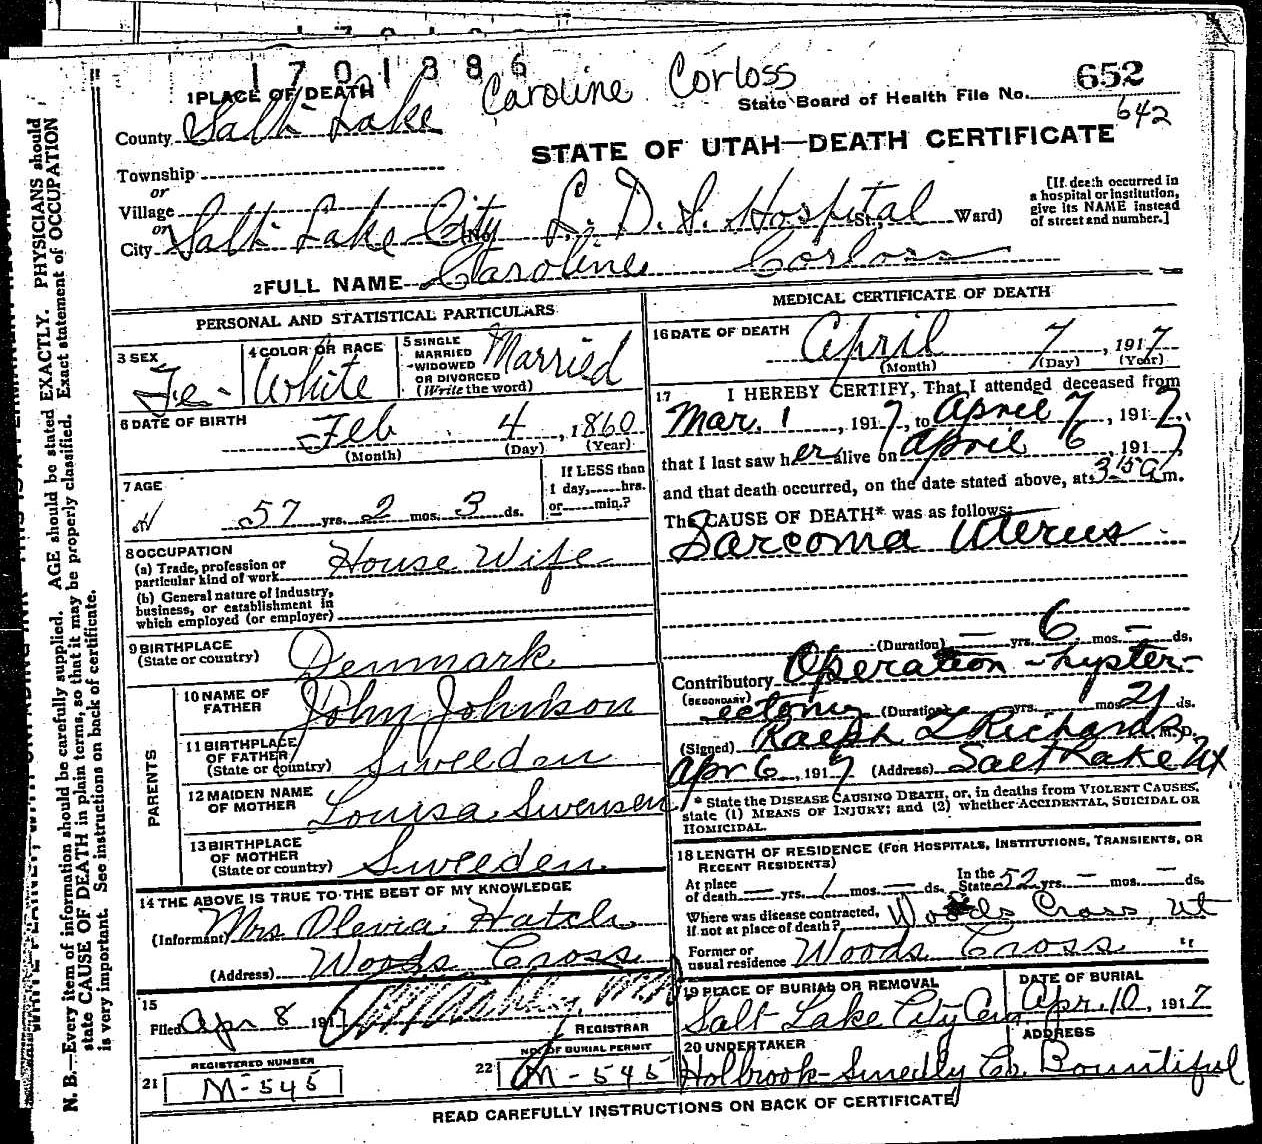 1701886
Caroline Corloss
State Board of Health File No. 652
642
1 PLACE OF DEATH
County Salt Lake
STATE OF UTAH—DEATH CERTIFICATE
Township
or
Village
or
City Salt Lake City No. L. D. S. Hospital St., Ward)
[If death occurred in
a hospital or institution,
give its NAME instead
of street and number.]
2 FULL NAME Caroline Corloss
PERSONAL AND STATISTICAL PARTICULARS
3 SEX
Fe-
4 COLOR OR RACE
White
5 SINGLE
MARRIED
WIDOWED
OR DIVORCED
(Write the word)
Married
6 DATE OF BIRTH
Feb 4, 1860
(Month) (Day) (Year)
7 AGE
57 yrs. 2 mos. 3 ds.
If LESS than
1 day,......hrs.
or......min.?
8 OCCUPATION
(a) Trade, profession or
particular kind of work House Wife
(b) General nature of industry,
business, or establishment in
which employed (or employer)
9 BIRTHPLACE
(State or country) Denmark
PARENTS
10 NAME OF
FATHER John Johnson
11 BIRTHPLACE
OF FATHER
(State or country) Sweeden
12 MAIDEN NAME
OF MOTHER Louisa Swensen
13 BIRTHPLACE
OF MOTHER
(State or country) Sweeden.
14 THE ABOVE IS TRUE TO THE BEST OF MY KNOWLEDGE
(Informant) Mrs Olevia Hatch
(Address) Woods Cross
15
Filed Apr 8 1917
REGISTRAR
REGISTERED NUMBER
21 M-545
NO. OF BURIAL PERMIT
22 M-545
MEDICAL CERTIFICATE OF DEATH
16 DATE OF DEATH
April 7, 1917
(Month) (Day) (Year)
17 I HEREBY CERTIFY, That I attended deceased from
Mar. 1, 1917, to April 7, 1917,
that I last saw her alive on April 6, 1917
and that death occurred, on the date stated above, at 3 15 a m.
The CAUSE OF DEATH* was as follows:
Sarcoma Uterus
(Duration) — yrs. 6 mos. — ds.
Contributory Operation - hyster-
(SECONDARY)
ectomy (Duration) yrs. mos. 21 ds.
(Signed) Ralph T Richards M. D.
Apr 6, 1917 (Address) Salt Lake Ut
* State the DISEASE CAUSING DEATH, or, in deaths from VIOLENT CAUSES,
state (1) MEANS OF INJURY; and (2) whether ACCIDENTAL, SUICIDAL OR
HOMICIDAL.
18 LENGTH OF RESIDENCE (FOR HOSPITALS, INSTITUTIONS, TRANSIENTS, OR
RECENT RESIDENTS)
At place
of death — yrs. 1 mos. — ds.
In the
State 52 yrs. — mos. — ds.
Where was disease contracted,
if not at place of death? Woods Cross, Ut
Former or
usual residence Woods Cross "
19 PLACE OF BURIAL OR REMOVAL
Salt Lake City Cem
DATE OF BURIAL
Apr. 10, 1917
20 UNDERTAKER
Holbrook-Smedly Co.
ADDRESS
Bountiful
READ CAREFULLY INSTRUCTIONS ON BACK OF CERTIFICATE
N. B.—Every item of information should be carefully supplied. AGE should be stated EXACTLY. PHYSICIANS should
state CAUSE OF DEATH in plain terms, so that it may be properly classified. Exact statement of OCCUPATION
is very important. See instructions on back of certificate.